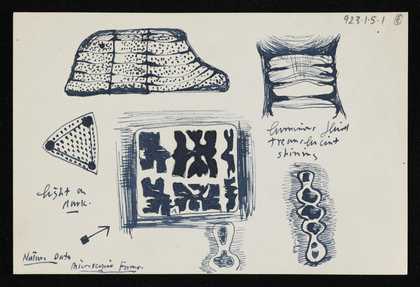 923.1.5.1
luminous fluid
translucent
shining
light on
dark.
Nature Data
Microscopic Forms.